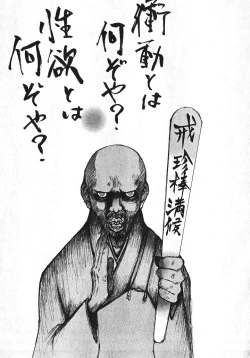 衝動とは
何ぞや？
性欲とは
何ぞや？
戒 珍棒満候